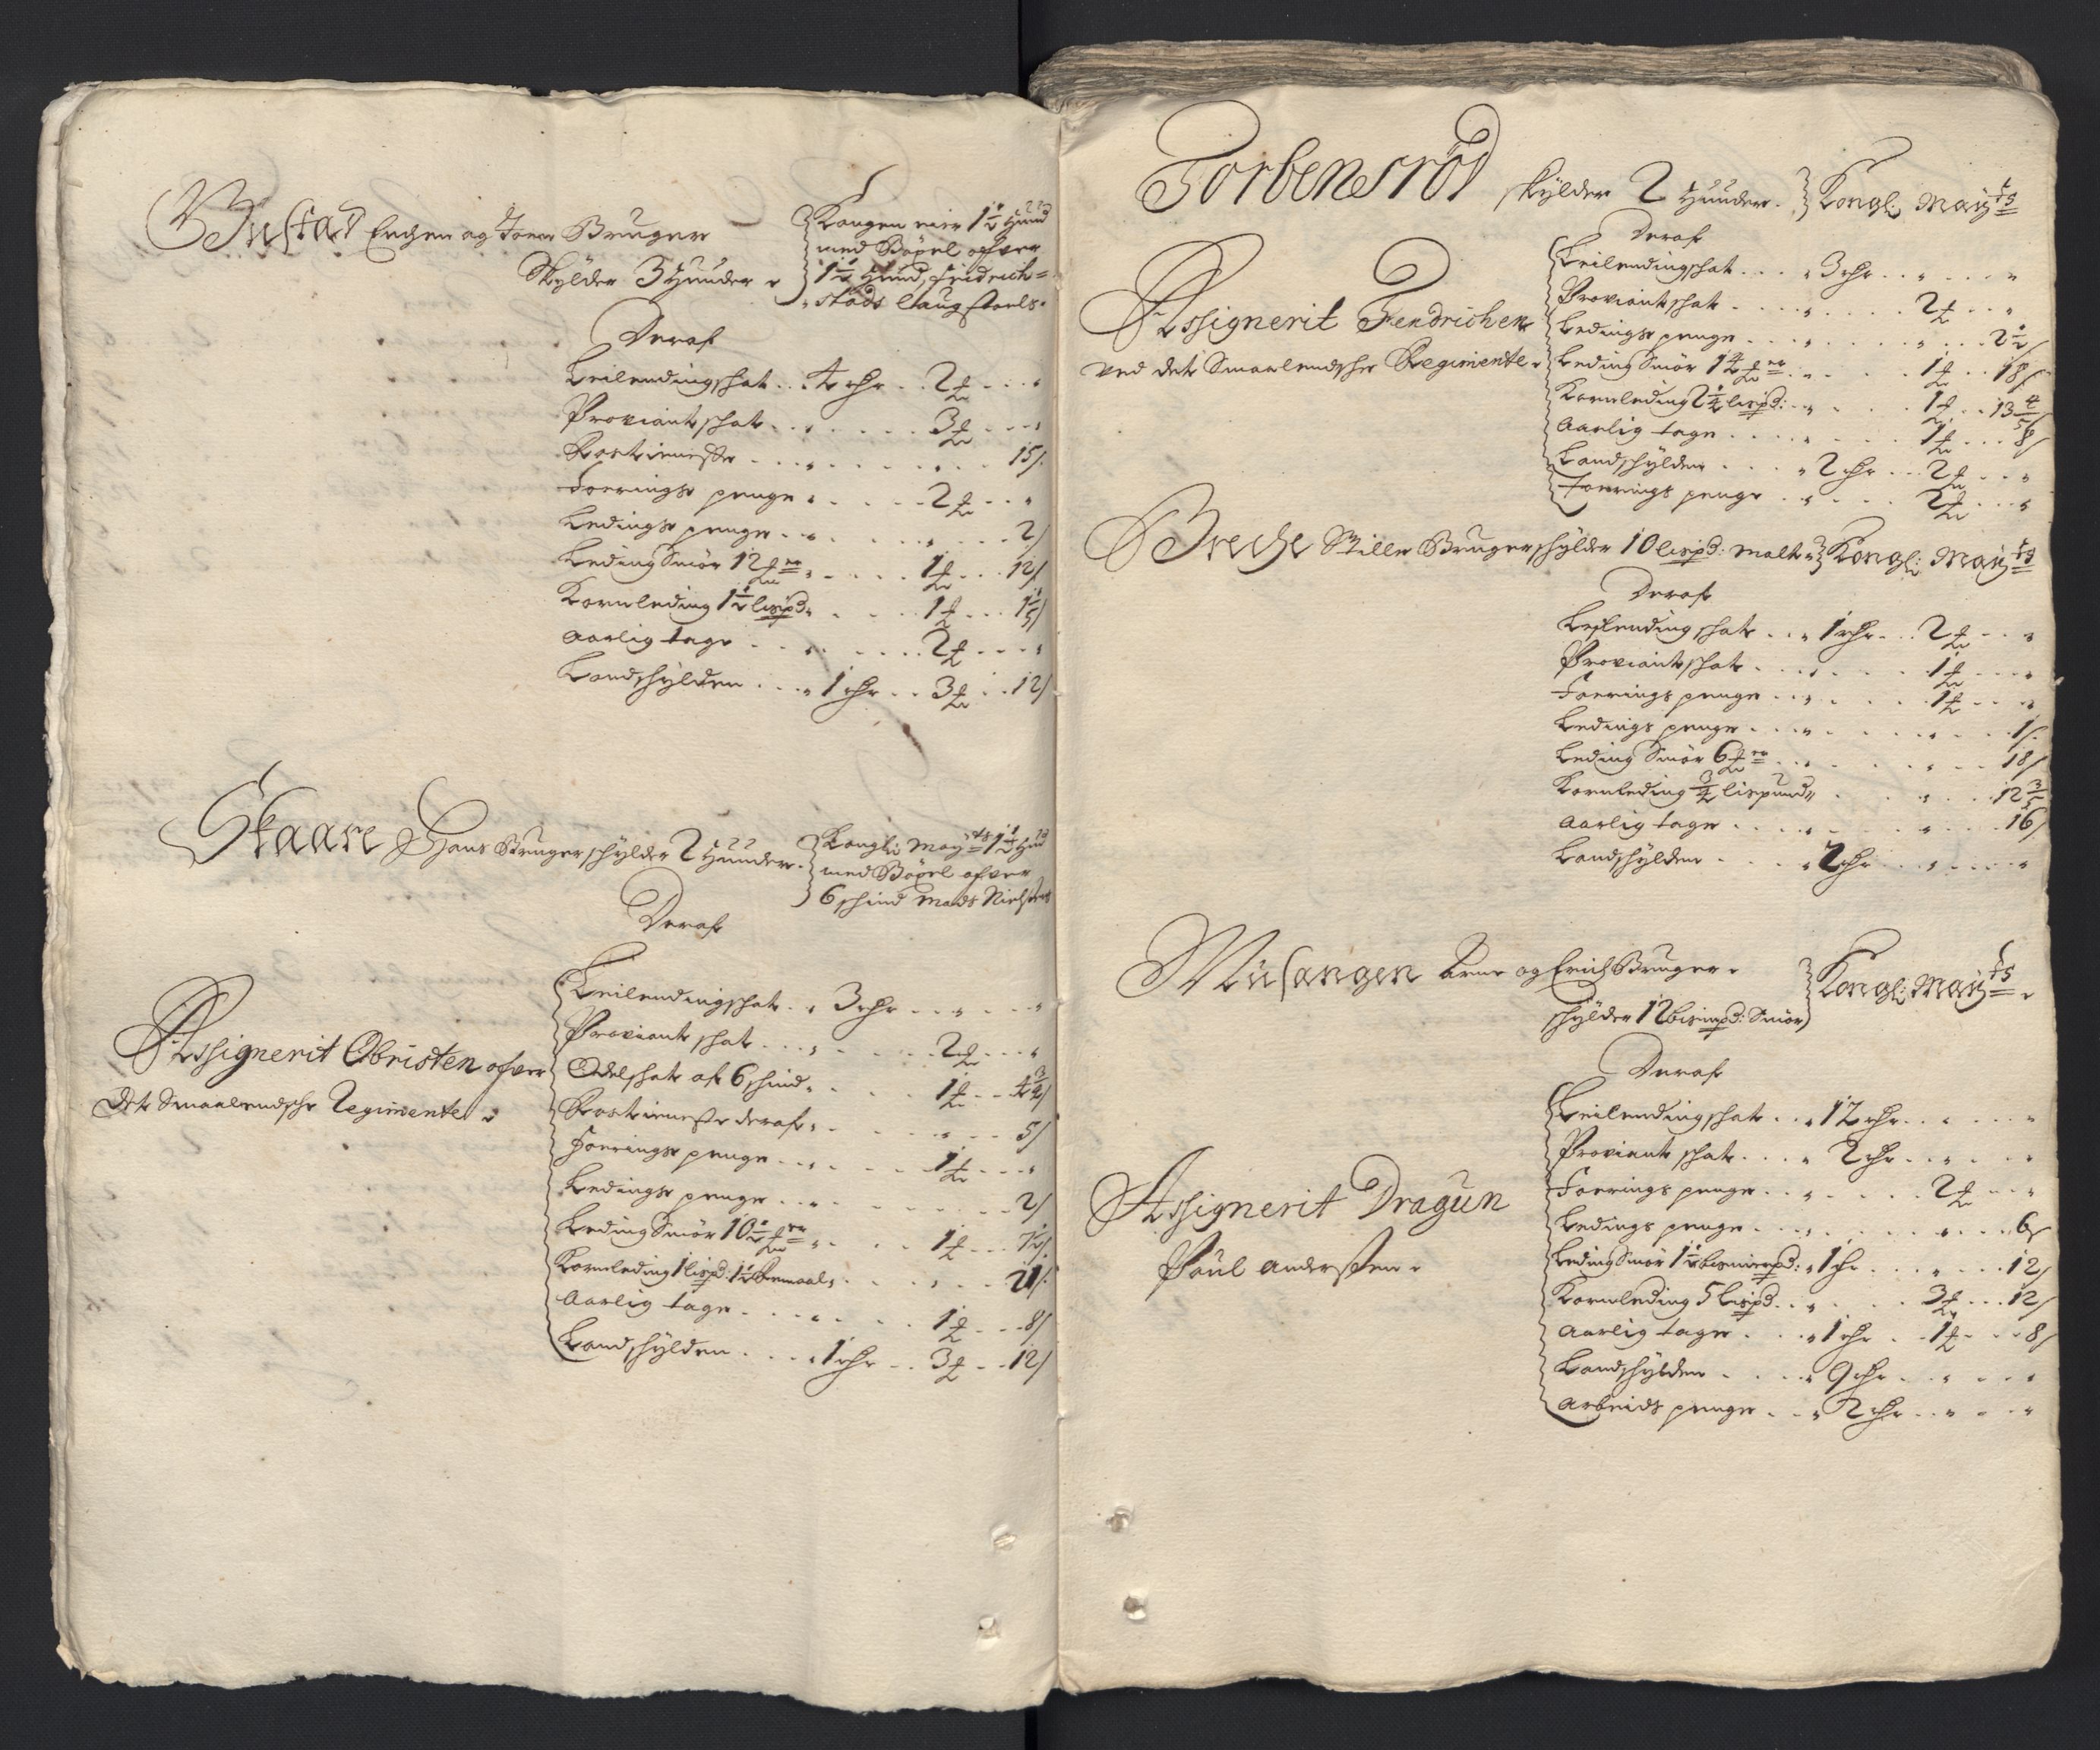 Bustad Enchen og Joen Bruger
Skylder 3 Hunder
Kongen eier 1½ Hund
med Böxel ofver
1½ Hund, Fridrich-
stads Laugstoels
Deraf
Leilendingschat . . 4 rdr . . 2 ₰ . . .
Proviantschat . . . 3 ₰ . . .
Rostieniste . . . 15/
Foerings penge . . . 2 ₰ . .
Ledings penge . . . 2/
Leding Smör 12 ₰er . . . 1 ₰ . . 12/
Kornleding 1½ lispd . . . 1 ₰ . . 1⅕/
Aarlig tage . . . 2 ₰ . . .
Landschylden . . . 1 rdr . . 3 ₰ . . 12/
Skaare Hans Bruger schylder 2 Hunder
Kongl: Maytz 1½ Hud
med Böxel ofver
6 schind Mads Nielsens
Deraf
Assignerit Obristen ofver
det Smaalendsche Regimente
Leilendingschat . . 3 rdr . . .
Proviant schat . . . 2 ₰ . . .
Odelschat af 6 schind . . . 1 ₰ . . 4¾/
Rostieniste deraf . . . 5/
Foerings penge . . . 1 ₰ . . .
Ledings penge . . . 2/
Leding Smör 10½ ₰er . . . 1 ₰ . . 7½/
Kornleding 1 lispd: 1½ Remaal . . . 21/
Aarlig tage . . . 1 ₰ . . 8/
Landschylden . . . 1 rdr . . 3 ₰ . . 12/
Torbensröd schylder 2 Hunder. Kongl: Maytz
Deraf
Assignerit Fendrichen
ved det Smaalendsche Regimente
Leilendingschat . . . 3 rdr . . .
Proviantschat . . . 2 ₰ . . .
Ledings penge . . . 2½/
Leding Smör 14 ₰er . . . 1 ₰ . . 18/
Kornleding 2¼ lispd: . . . 1 ₰ . . 13⅘/
Aarlig tage . . . 1 ₰ . . 8/
Landschylden . . . 2 rdr . . 2 ₰ . . .
Foerings penge . . . 2 ₰ . . .
Breche Stille Bruger schylder 10 lispd: malt Kongl: Maytz
Deraf
Leilending schat . . . 1 rdr . . 2 ₰ . . .
Proviantschat . . . 1 ₰ . . .
Foerings penge . . . 1 ₰ . . .
Ledings penge . . . 1/
Leding Smör 6 ₰er . . . 18/
Kornleding ¾ lispund . . . 12⅗/
Aarlig tage . . . 16/
Landschylden . . . 2 rdr . . .
Musangen Arne og Erich Bruger
schylder 12 bismpd: Smör
Kongl: Maytz
Deraf
Assignerit Dragun
Poul Andersen
Leilendingschat . . . 12 rdr . . .
Proviant schat . . . 2 rdr . . .
Foerings penge . . . 2 ₰ . . .
Ledings penge . . . 6/
Leding Smör 1½ bismerpd: 1 rdr . . . 12/
Kornleding 5 lispd . . . 3 ₰ . . 12/
Aarlig tage . . . 1 rdr . . 1 ₰ . . 8/
Landschylden . . . 9 rdr . . .
Arbeids penge . . . 2 rdr . . .